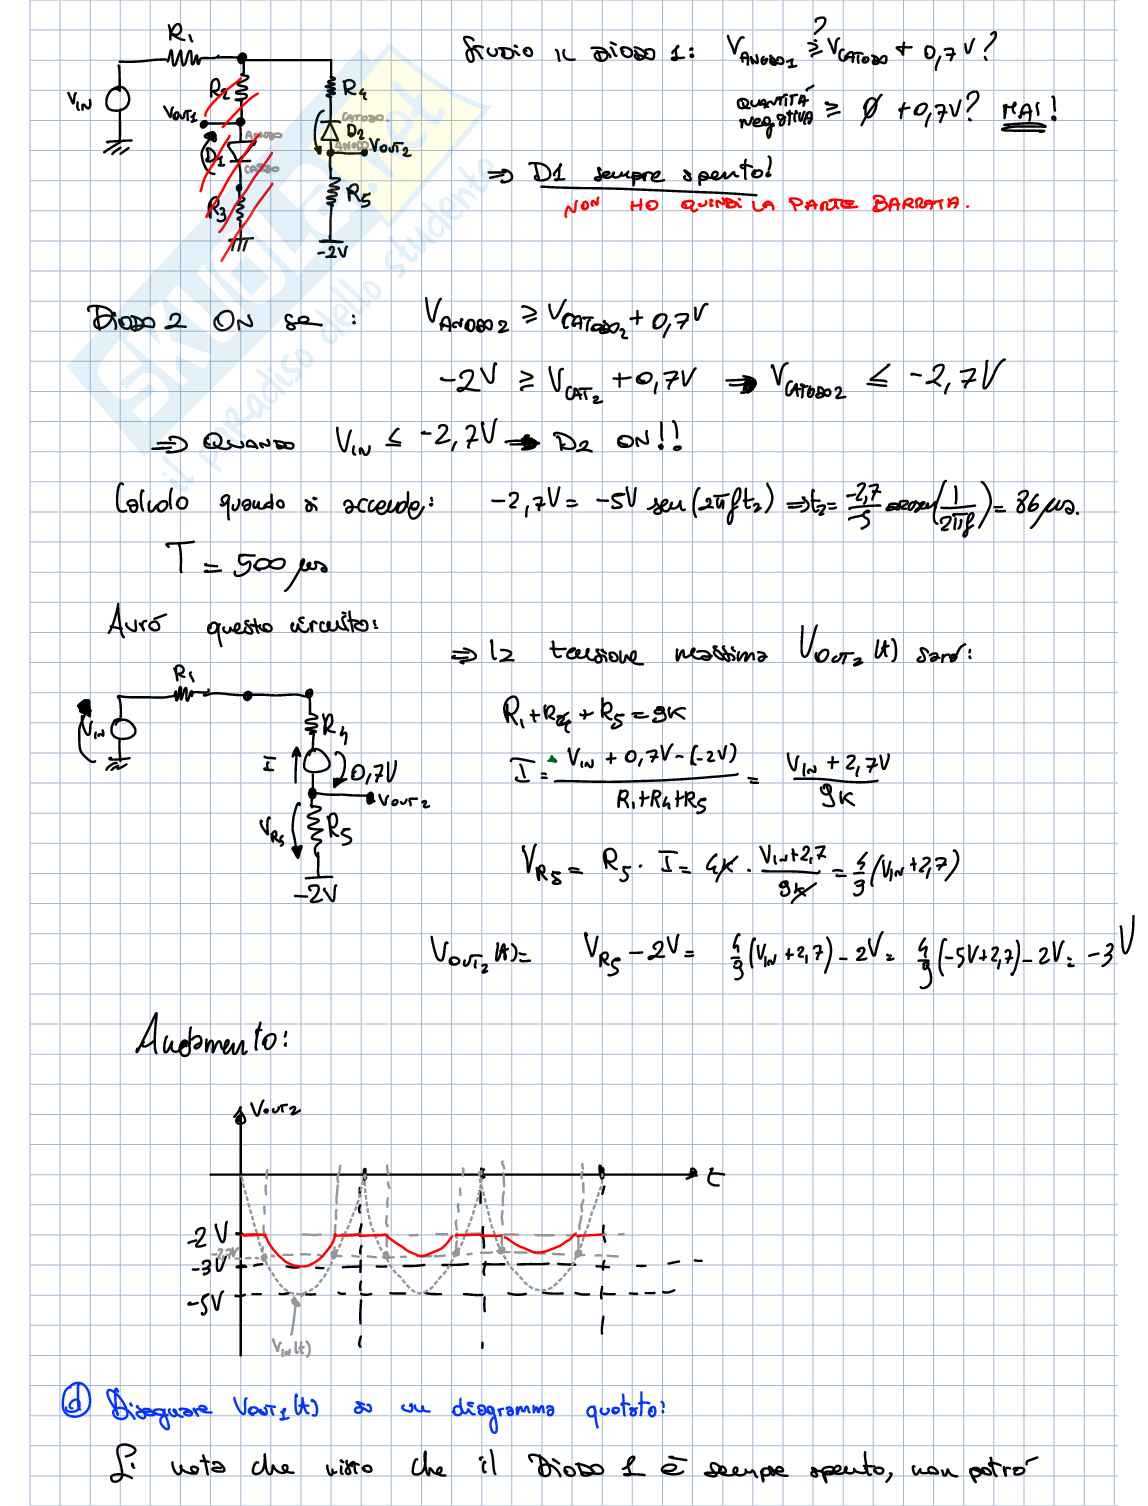 R1
R2
R4
VIN
VOUT1
ANODO
D1
CATODO
R3
CATODO
D2
ANODO
VOUT2
R5
-2V
STUDIO IL DIODO 1: VANODO1 ≥? VCATODO + 0,7V?
QUANTITÀ negativa ≥ Ø + 0,7V? MAI!
⇒ D1 sempre spento!
NON HO QUINDI LA PARTE BARRATA.
DIODO 2 ON se : VANODO2 ≥ VCATODO2 + 0,7V
-2V ≥ VCAT2 + 0,7V ⇒ VCATODO2 ≤ -2,7V
⇒ QUANDO VIN ≤ -2,7V → D2 ON!!
Calcolo quando si accende: -2,7V = -5V sen(2πft2) ⇒ t2 = -2,7/-5 arcsen(1/2πf) = 86 μs.
T = 500 μs
Avrò questo circuito:
⇒ la tensione massima VOUT2(t) sarà:
R1
VIN
R4
I
0,7V
VOUT2
VR5
R5
-2V
R1 + R4 + R5 = 9K
I = VIN + 0,7V - (-2V) / R1+R4+R5 = VIN + 2,7V / 9K
VR5 = R5 · I = 4K · VIN+2,7 / 9K = 4/9 (VIN + 2,7)
VOUT2(t) = VR5 - 2V = 4/9 (VIN + 2,7) - 2V = 4/9 (-5V+2,7) - 2V = -3V
Andamento:
VOUT2
t
-2V
-2,7V
-3V
-5V
VIN(t)
d Disegnare VOUT1(t) su un diagramma quotato:
Si nota che visto che il DIODO 1 È sempre spento, non potrò